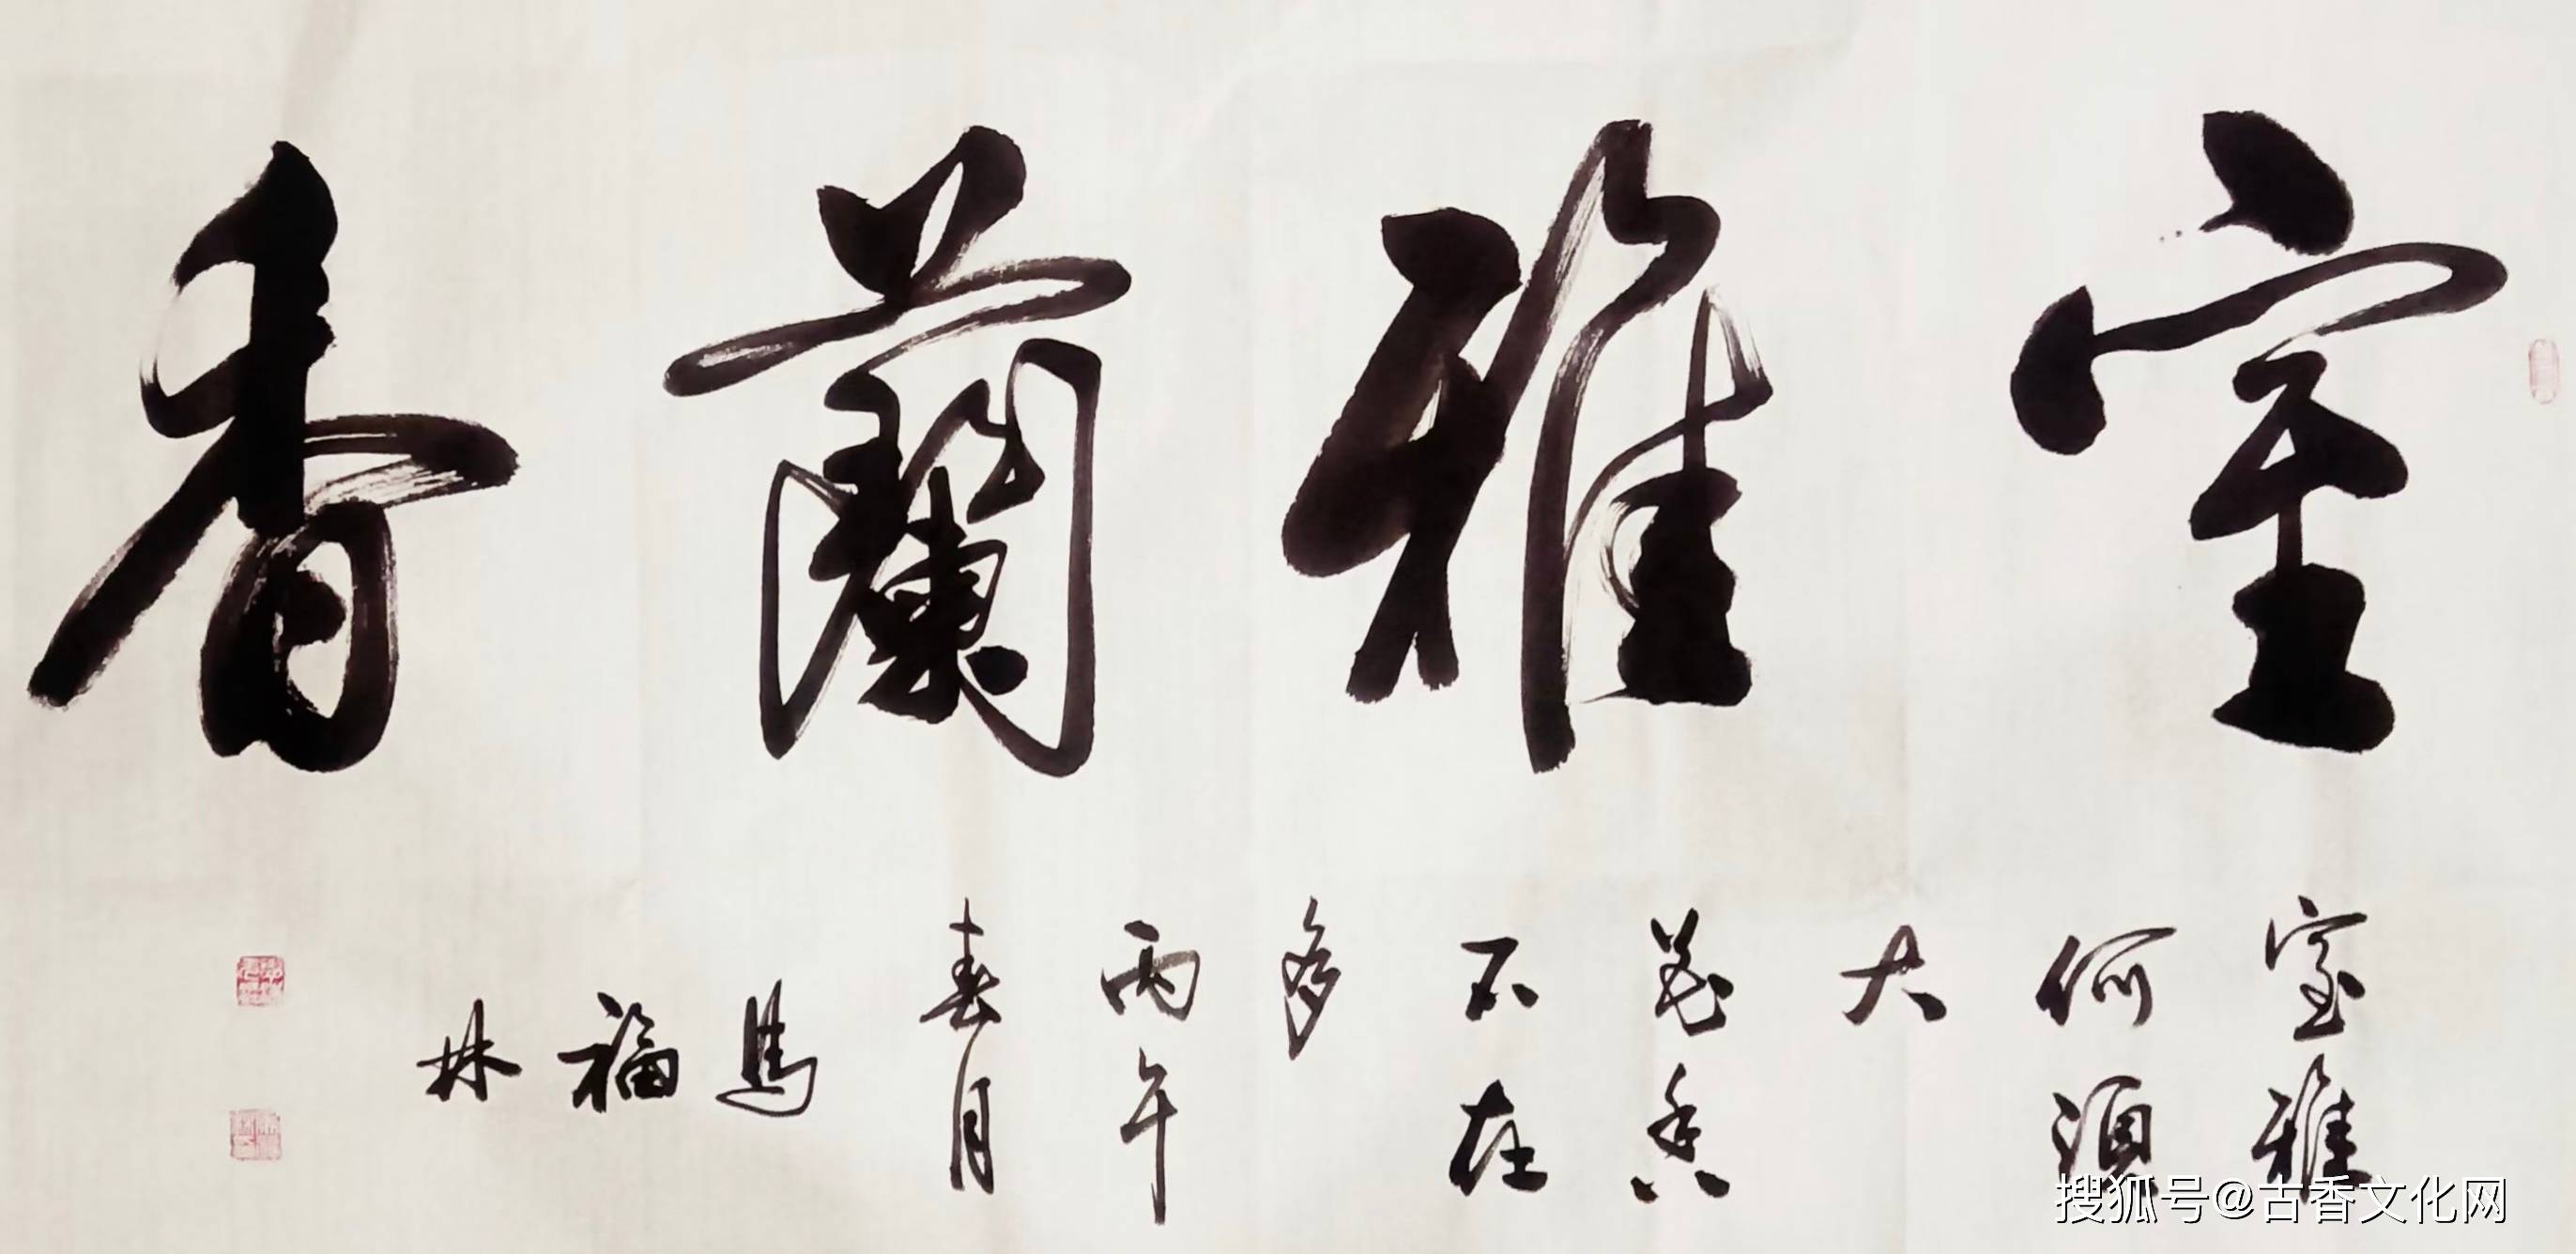 室雅蘭香
室雅
何須
大
花香
不在
多
丙午
春月
馬福林
搜狐号@古香文化网